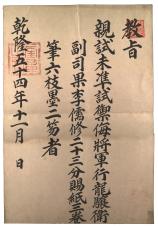 教旨
親試未準試禦侮將軍行龍驤衛
副司果李儒修二十三分賜紙三卷
筆六枝墨二笏者
乾隆五十四年十一月 日